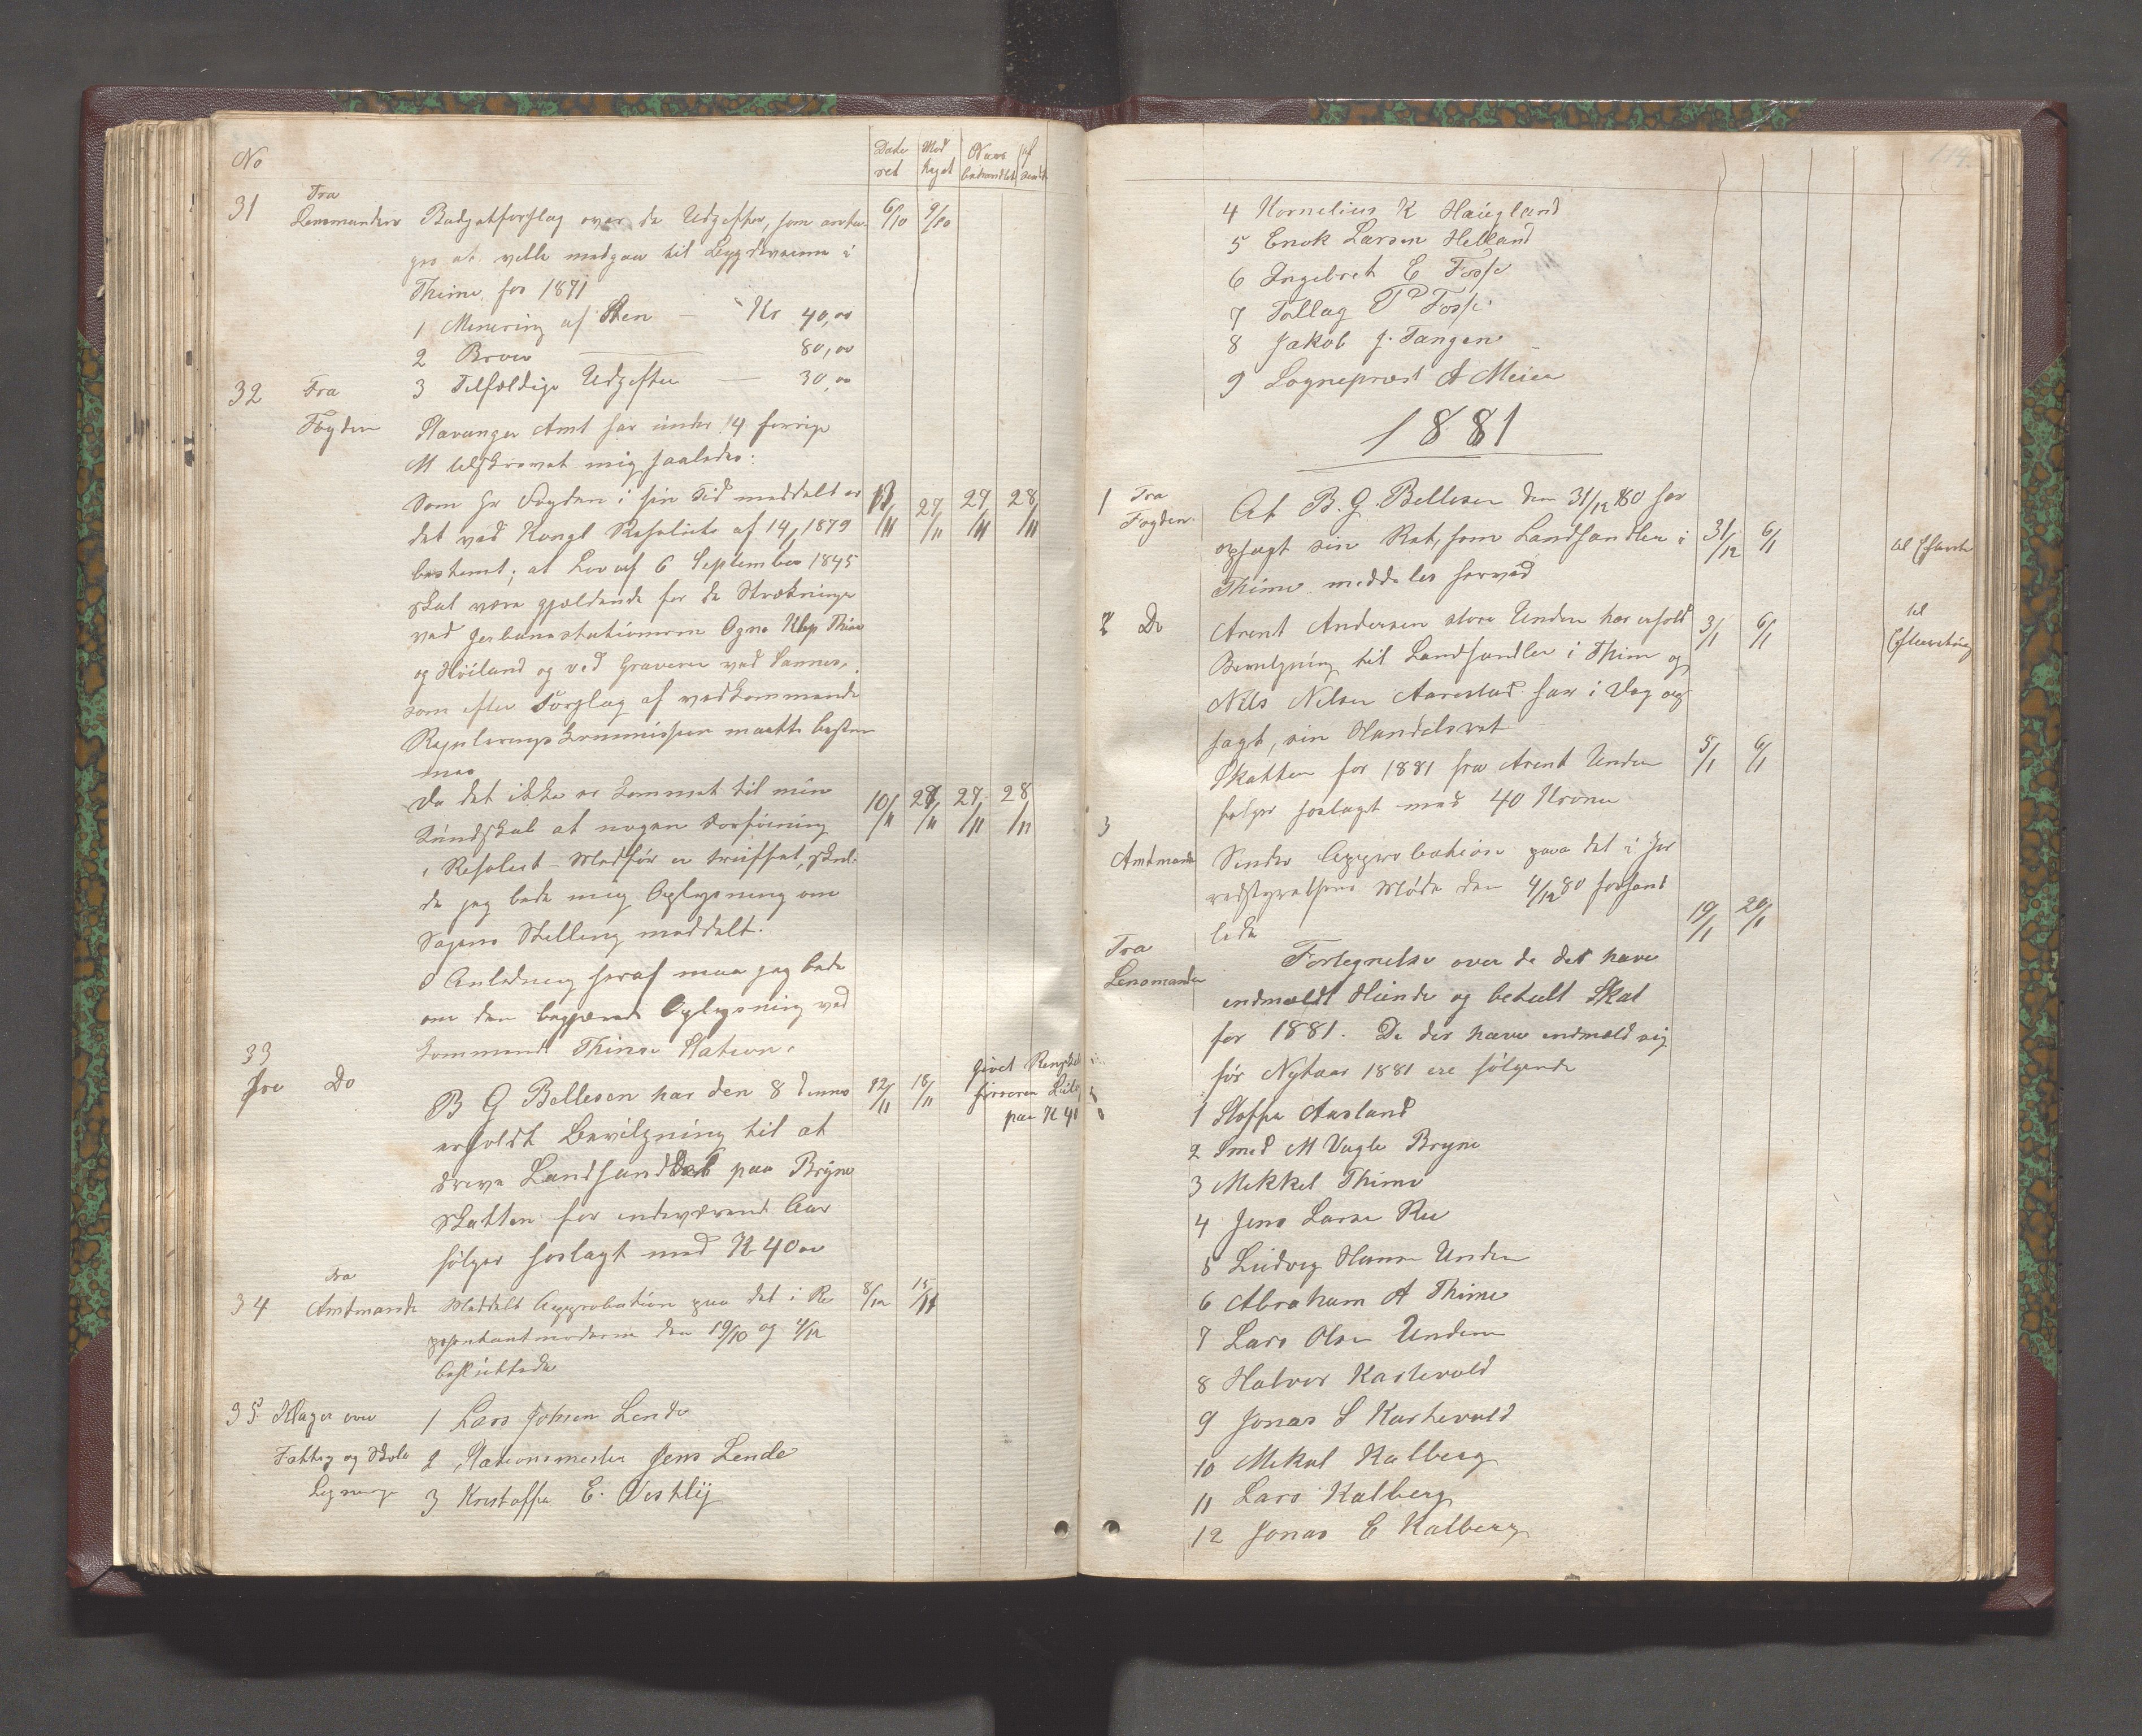 No
Date
ret
Mod
taget
Naar
behandlet
af
sendt
31
Fra
Lensmanden
Budgetforslag over de Udgifter, som antta-
ges at ville medgaa til Bygdeveiene i
Thime for 1871
1 Minering af Sten — Kr 40,00
2 Broer — 80,00
3 Tilfældige Udgifter — 30,00
6/10 9/10
32
Fra
Fogden
Stavanger Amt har under 14 forrige
M tilskrevet mig saaledes:
Som Hr Fogden i sin Tid meddelt er
det ved Kongl Resolution af 14/1 1879
bestemt, at Lov af 6 September 1845
skal være gjældende for de Strækninger
ved Jernbanestationerne Ogna Klep Thime
og Høiland og ved Graveren ved Sannes,
som efter Forslag af vedkommende
Regulerings Kommission maatte bestem
mes
13/11 27/11 27/11 28/11
Da det ikke er kommet til min
Kundskab at nogen Forføining
i Resolut. Medfør er truffet, skul-
de jeg bede mig Oplysning om
Sagens Stilling meddelt.
I Anledning heraf maa jeg bede
om den begjærede Oplysning ved
kommende Thime Station.
10/11 27/11 27/11 28/11
33
Fra Do
B G Bellesen har den 8 dennes
erholdt Bevilgning til at
drive Landhandel paa Bryne
Skatten for indeværende Aar
følger hoslagt med Kr 40 00
12/11 18/11
givet Regnskabs
føreren
paa K 40
34
Fra
Amtmande
Meddelt Approbation paa det i Re
præsentantmøderne den 19/10 og 4/12
besluttede
8/12 15/12
35 Klager over
Fattig og Skole
Ligninge
1 Lars Johsen Lende
2 Stationsmester Jens Lende
3 Kristoffer E. Vestlij
114.
4 Kornelius K Haugland
5 Enok Larsen Helland
6 Ingebret E Fosse
7 Tollag P Fosse
8 Jakob J. Tangen
9 Sognepræst A Meier
1881
1 Fra
Fogden
At B. G. Bellesen den 31/12 80 har
opsagt sin Ret, som Landhandler i
Thime meddeles herved
31/12 6/1
til Efterretn
2 Do
Arent Andersen store Undem har erholdt
Bevilgning til Landhandler i Thime og
Nils Nilsen Aarestad har i Dag op
sagt, sin Handelsret
3/1 6/1
til
Efterretning
Skatten for 1881 fra Arent Undem
følger hoslagt med 40 Kroner
5/1 6/1
3
Amtmande
Sender Approbation paa det i Her
redstyrelsens Møde den 4/12 80 forhand
lede
19/1 20/1
Fra
Lensmanden
Fortegnelse over de der have
indmældt Hunde og betalt Skat
for 1881. De der have indmæld sig
før Nytaar 1881 ere følgende
1 Stoffer Aasland
2 Smed M Vagle Bryne
3 Mekkel Thime
4 Jens Larse Ree
5 Ludvig Hanse Undem
6 Abraham A Thime
7 Lars Olsen Undem
8 Halvor Kartevold
9 Jonas S Kartevold
10 Mekal Kalberg
11 Lars Kalberg
12 Jonas E Kalberg